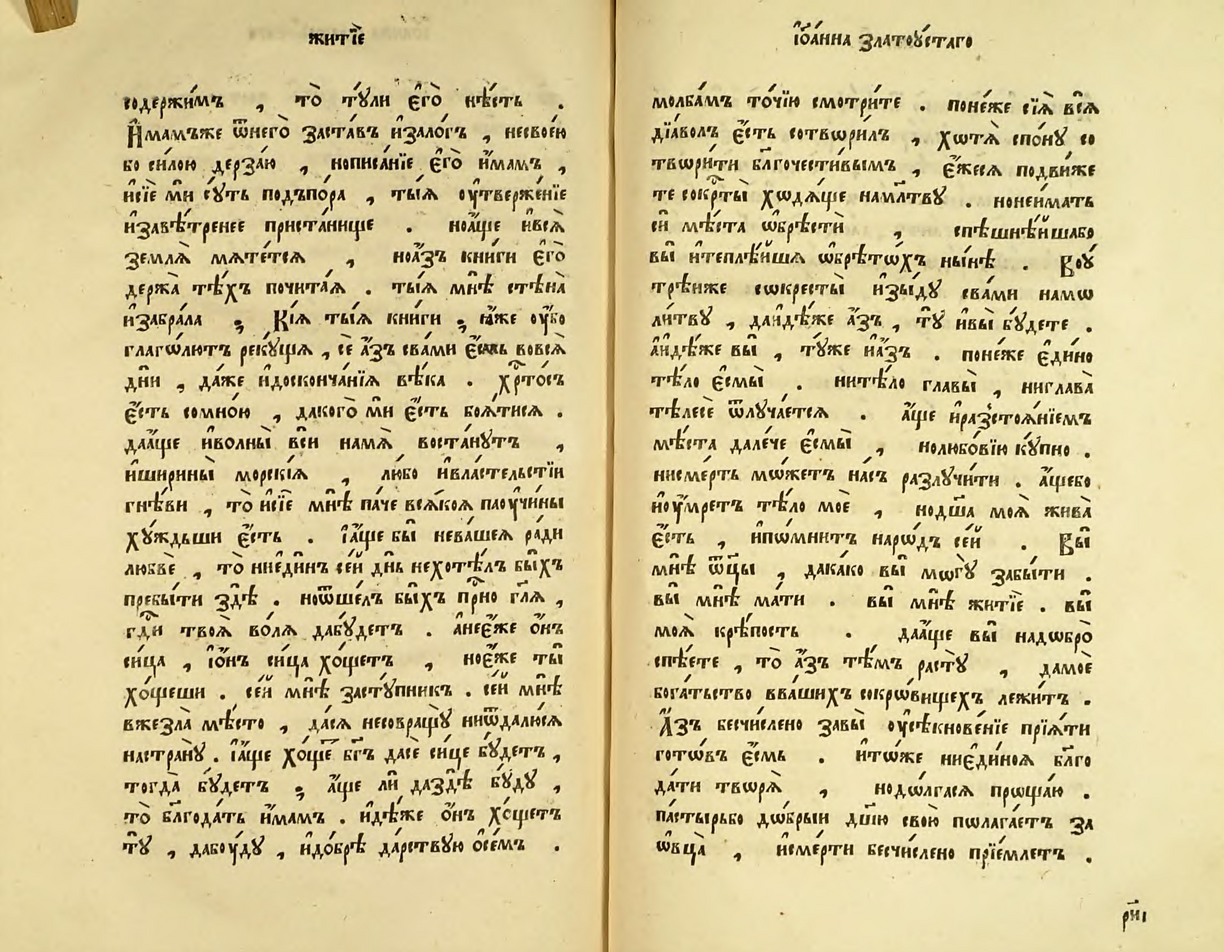 житїе
содержи́мъ , то̀ тꙋ́ли є҆го̀ нѣ́сть .
И҆́мамъже ѿнего̀ заста́въ и҆зало́гъ , несвое́ю
бо си́лою дерза́ю , нописа́нїе є҆го̀ и҆́мамъ ,
исїе́ ми сꙋ́ть подъпо́ра , ты́ѧ оу҆твержде́нїе
и҆заве́тренее приста́нище . ноа́ще и҆всѧ̀
землѧ̀ мѧте́тсѧ , ноа҆́зъ кни́ги є҆го̀
держа̀ тѣ́хъ почита́ѧ . ты́ѧ мнѣ̀ стѣна̀
и҆забра́ла ; Кі́ѧ ты́ѧ кни́ги ; ꙗ҆́же оу҆́бо
глаго́лютъ рекꙋ́щѧ , се а҆́зъ сва́ми є҆́смь вовсѧ̀
дни̑ , да́же и҆досконча́нїѧ вѣ́ка . хрⷭ҇то́съ
є҆́сть сомно́ю , дакого̀ ми є҆́сть боѧ́тисѧ .
даа҆́ще и҆волны̀ всѝ намѧ̀ воста́нꙋтъ ,
и҆ширины̀ морскі́ѧ , лю́бо и҆вла́стельстїи
гнѣ́ви , то̀ и҆сїѐ мнѣ̀ па́че всѧ́коѧ паоучи́ны
хꙋ́ждьши є҆́сть . І҆а҆́ще бы̀ нева́шеѧ ра́ди
любвѐ , то̀ ниеди́нъ се́й дн҃ь нехотѣ́лъ бы́хъ
пребы́ти здѣ̀ . ноѿше́лъ бы́хъ при́сно гл҃ѧ ,
гдⷭ҇и твоѧ̀ во́лѧ дабꙋ́детъ . а҆нее҆́же о҆́нъ
си́ца , і҆о҆́нъ си́ца хо́щетъ , ное҆́же ты̀
хо́щеши . се́й мнѣ̀ застꙋ́пникъ . се́й мнѣ̀
вжезла̀ мѣ́сто , да́сѧ несовращꙋ̀ ниѿдали́сѧ
настра́нꙋ . І҆а҆́ще хо́ще бг҃ъ да́се си́це бꙋ́детъ ,
тогда̀ бꙋ́детъ ; а҆́ще ли̑ даздѣ̀ бꙋ́дꙋ ,
то̀ бл҃года́ть и҆́мамъ . идѣ́же о҆́нъ хо́щетъ
тꙋ̀ , дабоу́дꙋ , и҆до́брѣ да́рствꙋю о҆се́мъ .
і҆ѡа́нна златоꙋ́стаго
молба́мъ то́чїю смотри́те . поне́же сїѧ̀ всѧ̀
дїа́волъ є҆́сть сотвори́лъ , хотѧ̀ спо́нꙋ со
твори́ти бл҃гочести́вымъ , є҆́жесѧ подви́же
те сокрⷭ҇ты̀ ходѧ́ще намл҃твꙋ . нонеи́мать
си̑ мѣ́ста ѡ҆брѣстѝ , спѣ́шнѣйшабо
вы̀ и҆тепле́йшѧ ѡ҆брѣто́хъ ны́нѣ . Воꙋ́
трѣиже сокресты̀ и҆зы́дꙋ сва́ми намо
ли́твꙋ , даи҆дѣ́же а҆́зъ , тꙋ̀ и҆вы̀ бꙋ́дете .
а҆идѣ́же вы̀ , тꙋ́же и҆а҆́зъ . поне́же є҆ди́но
тѣ́ло є҆смы̀ . нитѣ́ло главы̀ , ниглава̀
тѣ́лесѐ ѿлꙋча́етсѧ . а҆́ще и҆разстоѧ́нїемъ
мѣ́ста дале́че є҆смы̀ , нолюбо́вїю кꙋ́пно .
нисме́рть мо́жетъ на́съ разлꙋчи́ти . а҆́щебо
ноꙋ́мретъ тѣ́ло моѐ , нодш҃а̀ моѧ̀ жива̀
є҆́сть , и҆по́мнитъ наро́дъ се́й . Вы̀
мнѣ̀ ѿцы̀ , дака́ко вы̀ могꙋ̀ забы́ти .
вы̀ мнѣ̀ ма́ти . вы̀ мнѣ̀ житїѐ . вы̀
моѧ̀ крѣ́пость . даа҆́ще вы̀ надобро̀
спѣ́ете , то̀ а҆́зъ тѣ́мъ растꙋ̀ , дамоѐ
бога́тьство вва́шихъ сокро́вищехъ лежи́тъ .
А҆́зъ бесчи́слено завы̀ оу҆сѣкнове́нїе прїѧ́ти
гото́въ є҆́смь . и҆то́же ниеди́ноѧ бл҃го
да́ти творѧ̀ , нодо́лгасѧ проща́ю .
па́стырьбо до́брыи дш҃ю свою̀ полага́етъ за
ѡ҆́вца̀ , и҆сме́рти бесчи́слено прїе́млетъ .
рн҃і